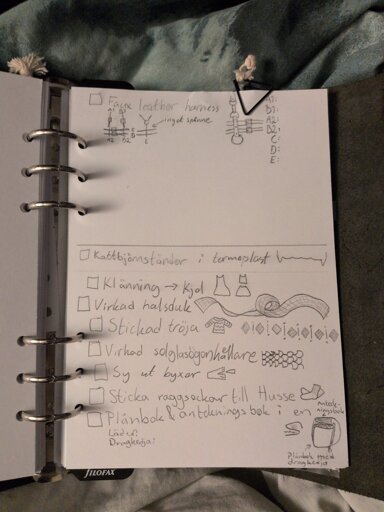 Faux leather harness
inget spänne
A1 B1
A2 D2
C
D
E
A1:
B1:
A2:
D2:
C:
D:
E:
Kattbjörnständer i termoplast
Klänning → Kjol
Virkad halsduk
Stickad tröja
Virkad solglasögonhållare
Sy ut byxor
Sticka raggsockar till Husse
Plånbok & anteckningsbok i en
Läder:
Dragkedja:
Anteck-
ningsbok
Plånbok med
dragkedja
FILOFAX